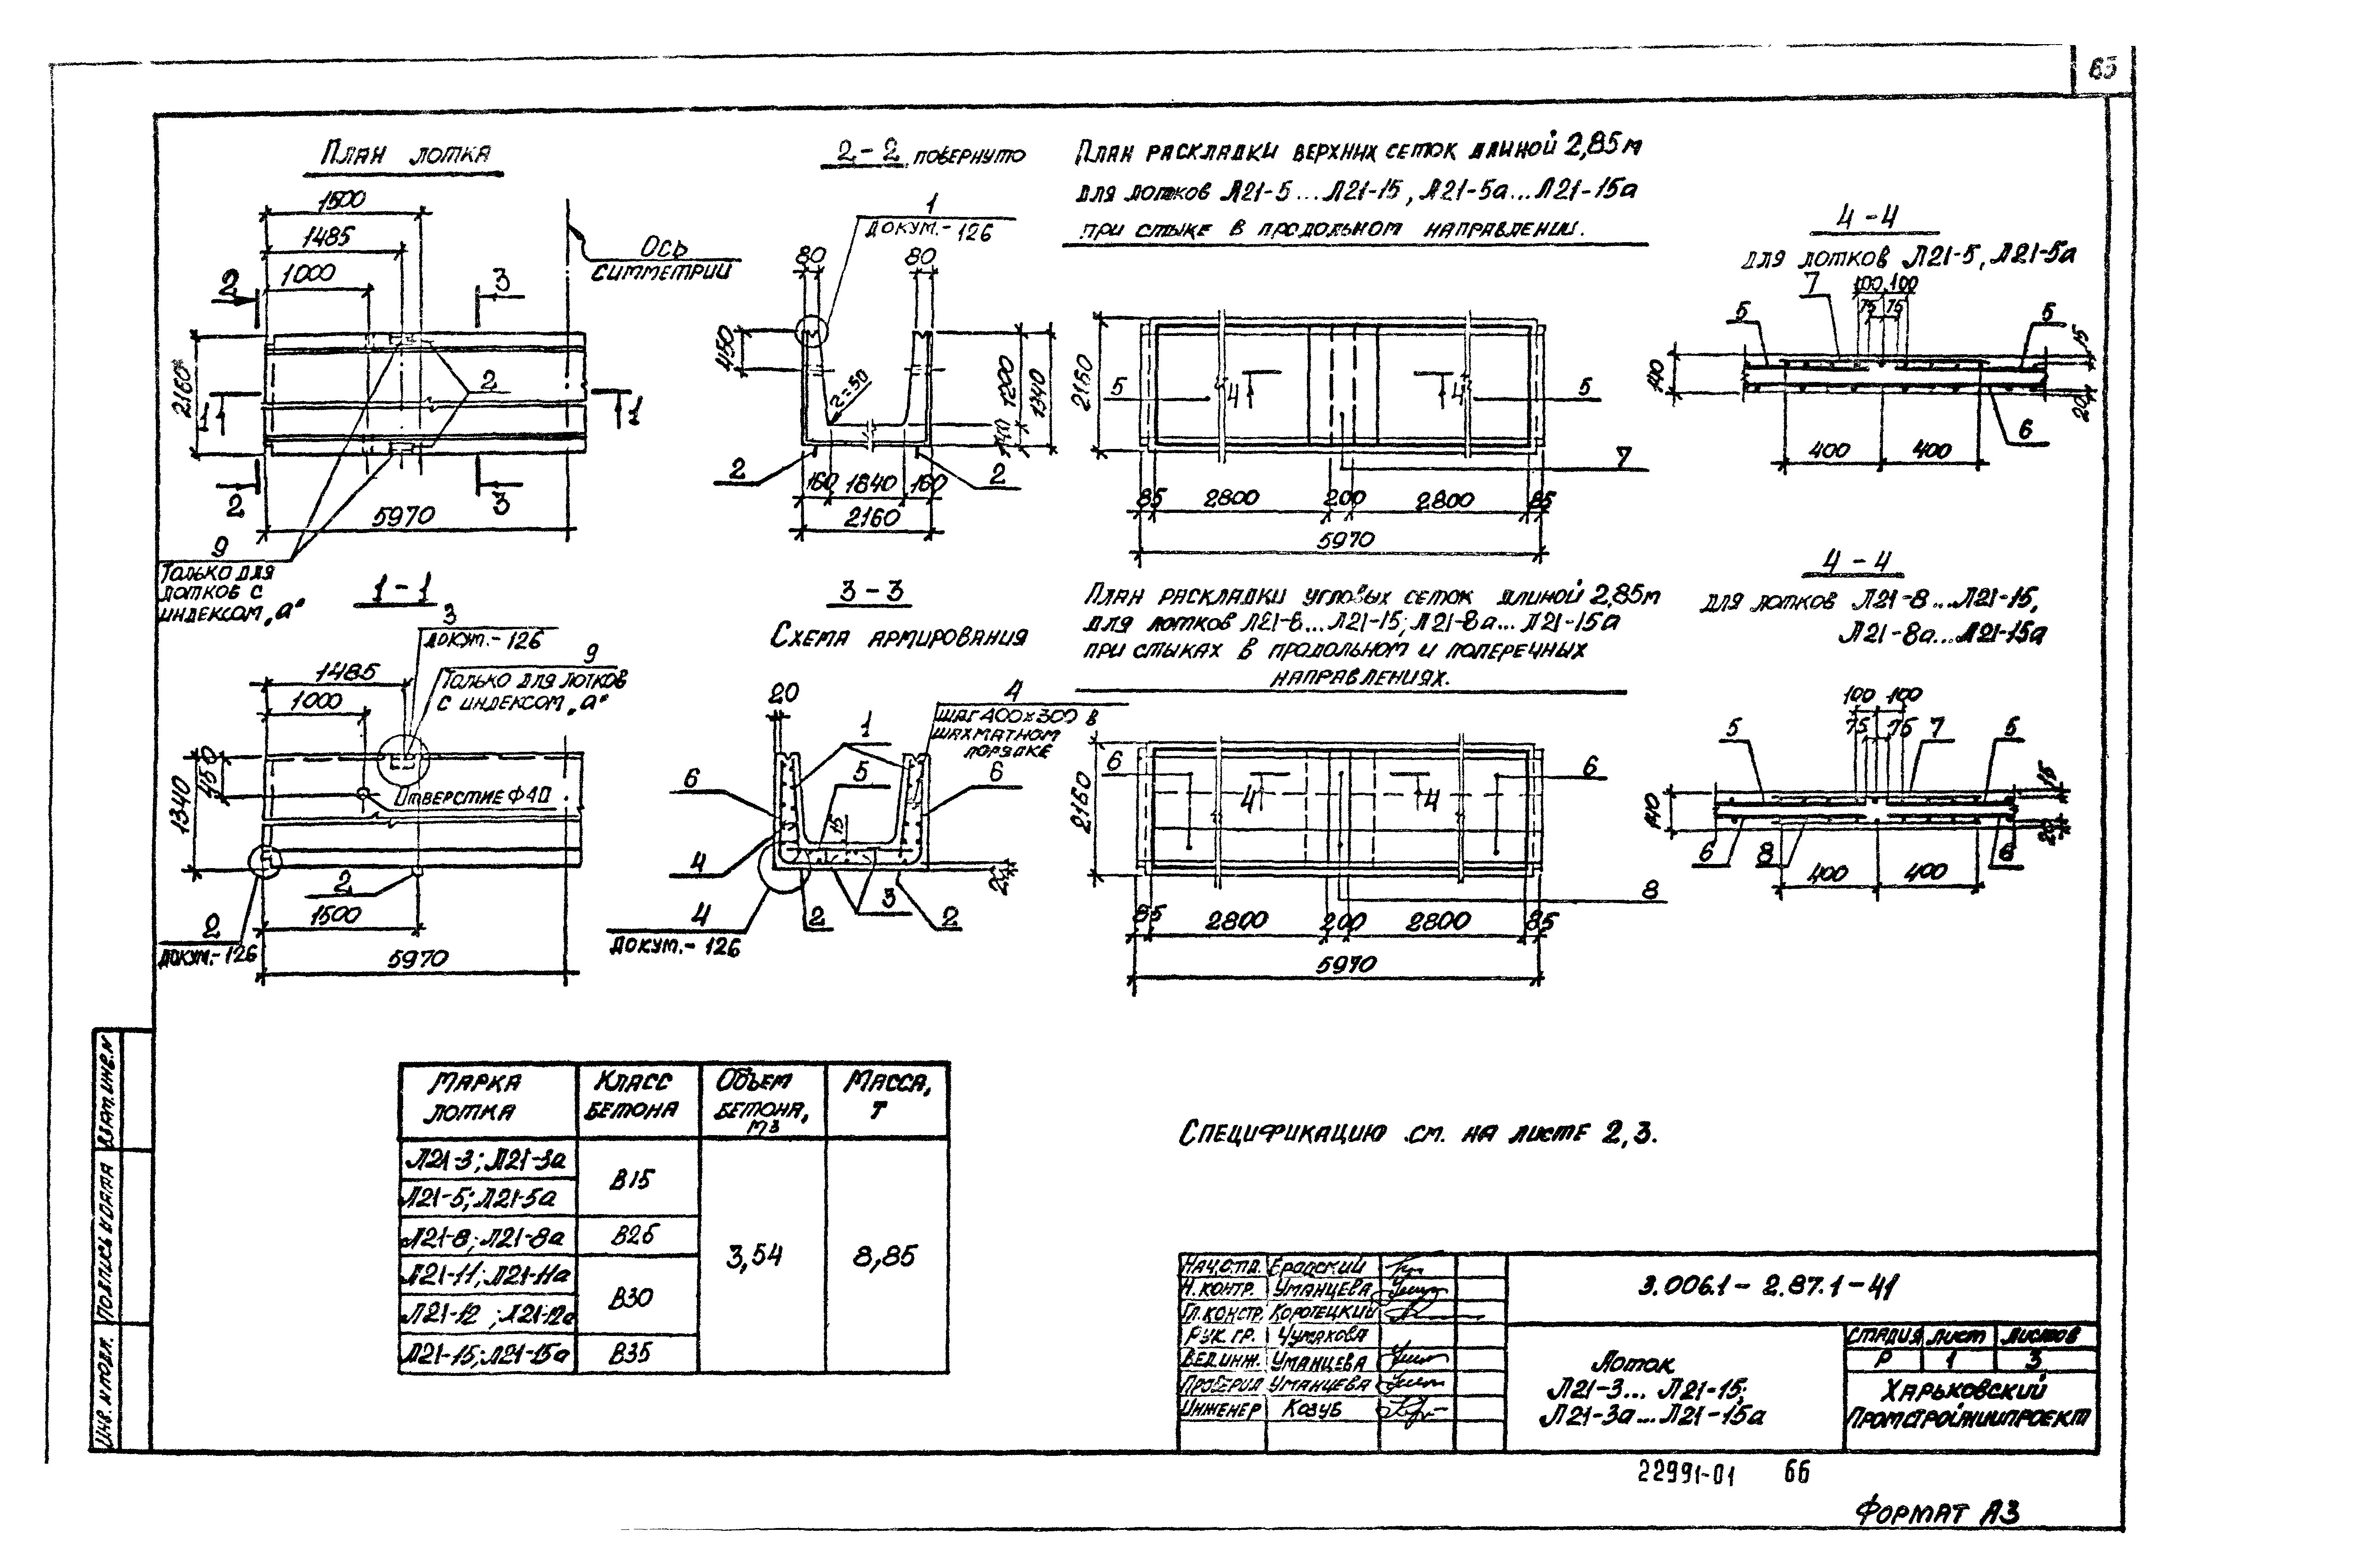 63
План лотка
1500
1485
1000
Ось
симметрии
2
3
2160*
1
2
1
2
3
5970
9
Только для
лотков с
индексом „а"
2-2 повернуто
1
докум.-126
80
80
450
r=50
1200
1340
140
2
2
160
1840
160
2160
План раскладки верхних сеток длиной 2,85м
для лотков Л21-5...Л21-15, Л21-5а...Л21-15а
при стыке в продольном направлении.
2160
5
4
4
5
7
85
2800
200
2800
85
5970
4-4
для лотков Л21-5, Л21-5а
7
100
100
75
75
5
5
15
140
20
6
400
400
1-1
3
докум.-126
9
Только для лотков
с индексом „а"
1485
1000
450
1340
Отверстие Ф40
2
1500
2
докум.-126
5970
3-3
Схема армирования
20
4
шаг 400х300 в
шахматном
порядке
1
5
6
6
15
4
4
докум.-126
2
3
2
План раскладки угловых сеток длиной 2,85м
для лотков Л21-8...Л21-15; Л21-8а...Л21-15а
при стыках в продольном и поперечных
направлениях.
2160
6
4
4
6
8
85
2800
200
2800
85
5970
4-4
для лотков Л21-8...Л21-15,
Л21-8а...Л21-15а
100
100
75
75
5
7
5
15
140
20
6
8
6
400
400
Марка
лотка
Класс
бетона
Объем
бетона,
м3
Масса,
т
Л21-3; Л21-3а
Л21-5; Л21-5а
В15
Л21-8; Л21-8а
В25
Л21-11; Л21-11а
Л21-12; Л21-12а
В30
Л21-15; Л21-15а
В35
3,54
8,85
Спецификацию см. на листе 2,3.
Нач.отд.
Н.контр. Уманцева
Гл.констр. Коротецкий
Рук.гр. Чумакова
Вед.инж. Уманцева
Проверил Уманцева
Инженер Козуб
3.006.1-2.87.1-41
Лоток
Л21-3... Л21-15;
Л21-3а...Л21-15а
Стадия Лист Листов
Р 1 3
Харьковский
Промстройниипроект
Взам.инв.N
Подпись и дата
Инв. N подл.
22991-01 66
Формат А3